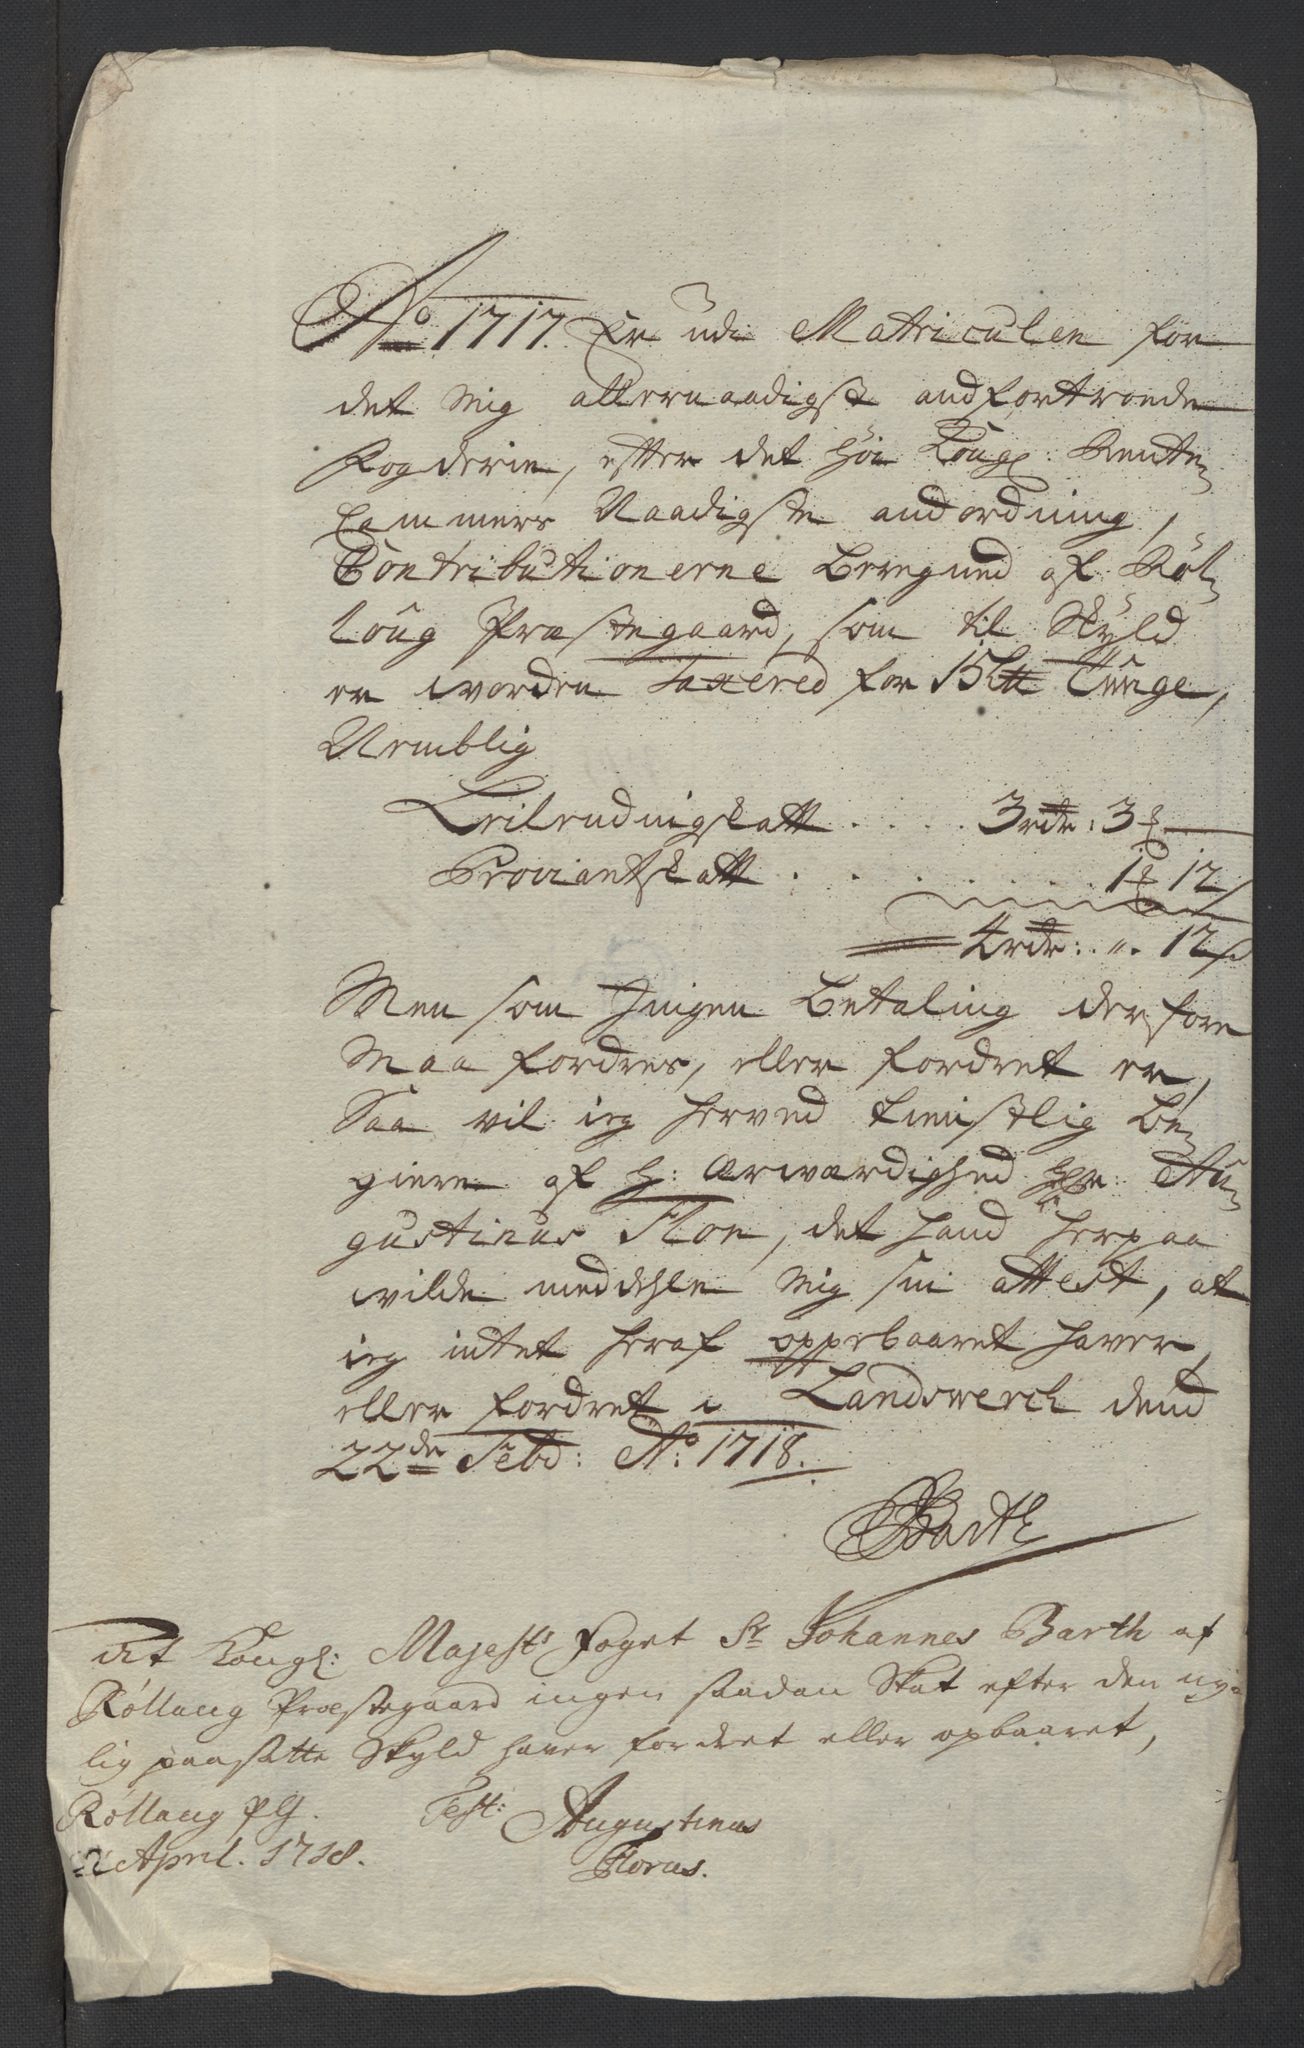 Ao 1717. Er udi Matriculen for
det Mig allernaadigst andfortroede
Fogderie, efter det høie Kongl: Rente
Cammers Naadigste andordning,
Contributionerne beregned af Røl
loug Præstegaard, som til Skyld
er worden taxered for 1½ Tunge,
Nemblig
Leilendingskatt . . . . . 3 rdr: 3
Proviantskatt . . . . . . . 1 12
4 rdr: „. 12
Men som Ingen betaling derfore
Maa fordres, eller fordret er,
Saa vil ieg herved tienstlig be
giere af h: Ærværdighed hr: Au
gustinus Flor, det hand herpaa
vilde meddehle Mig sin attest, at
ieg intet heraf oppebaaret haver
eller fordret. Landswerck dend
22de Febr: Ao: 1718.
Barth
At Kongl: Majests Foget Sr Johannes Barth af
Rollaug Præstegaard ingen saadan Skat efter den nye
lig paasatte Skyld haver fordret eller opbaaret,
Rollaug PG. Test: Augustinus
April. 1718. Florus.